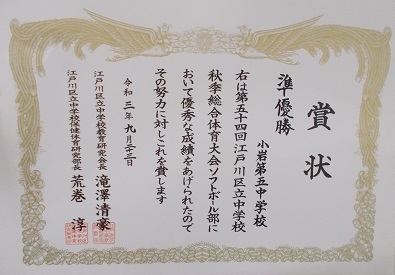 賞状
準優勝
小岩第五中学校
右は第五十四回江戸川区立中学校
秋季総合体育大会ソフトボール部に
おいて優秀な成績をあげられたので
その努力に対しこれを賞します
令和三年九月二十三日
江戸川区立中学校教育研究会長 滝澤清豪
江戸川区立中学校保健体育研究部長 荒巻淳